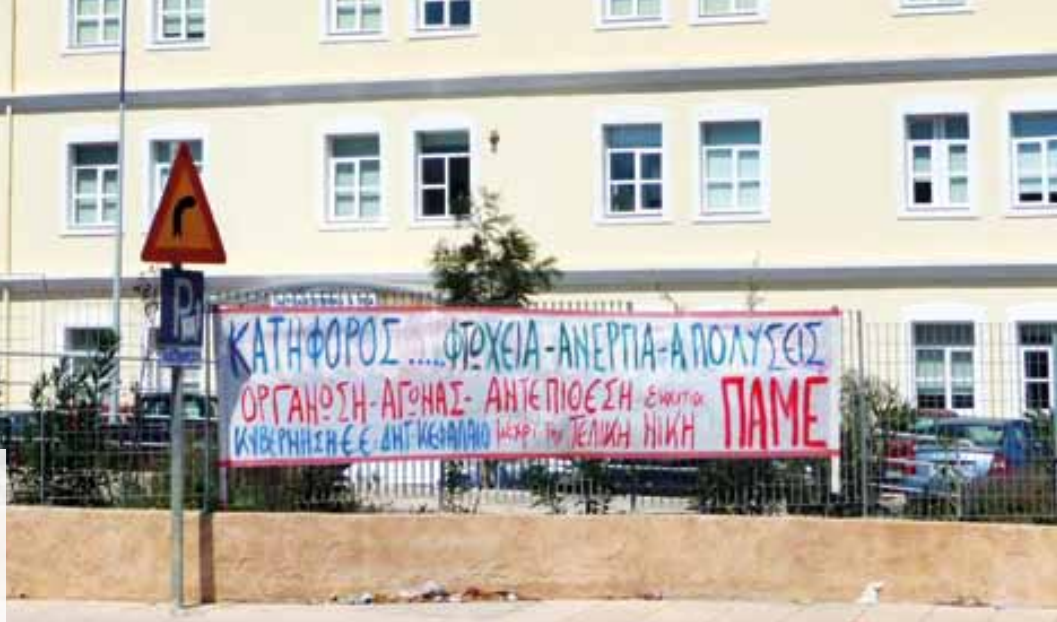 P
ΚΑΤΗΦΟΡΟΣ.....ΦΤΩΧΕΙΑ-ΑΝΕΡΓΙΑ-ΑΠΟΛΥΣΕΙΣ
ΟΡΓΑΝΩΣΗ-ΑΓΩΝΑΣ-ΑΝΤΕΠΙΘΕΣΗ
ΚΥΒΕΡΝΗΣΗ ΕΕ ΔΝΤ ΚΕΦΑΛΑΙΟ μεχρι την ΤΕΛΙΚΗ ΝΙΚΗ
ΠΑΜΕ